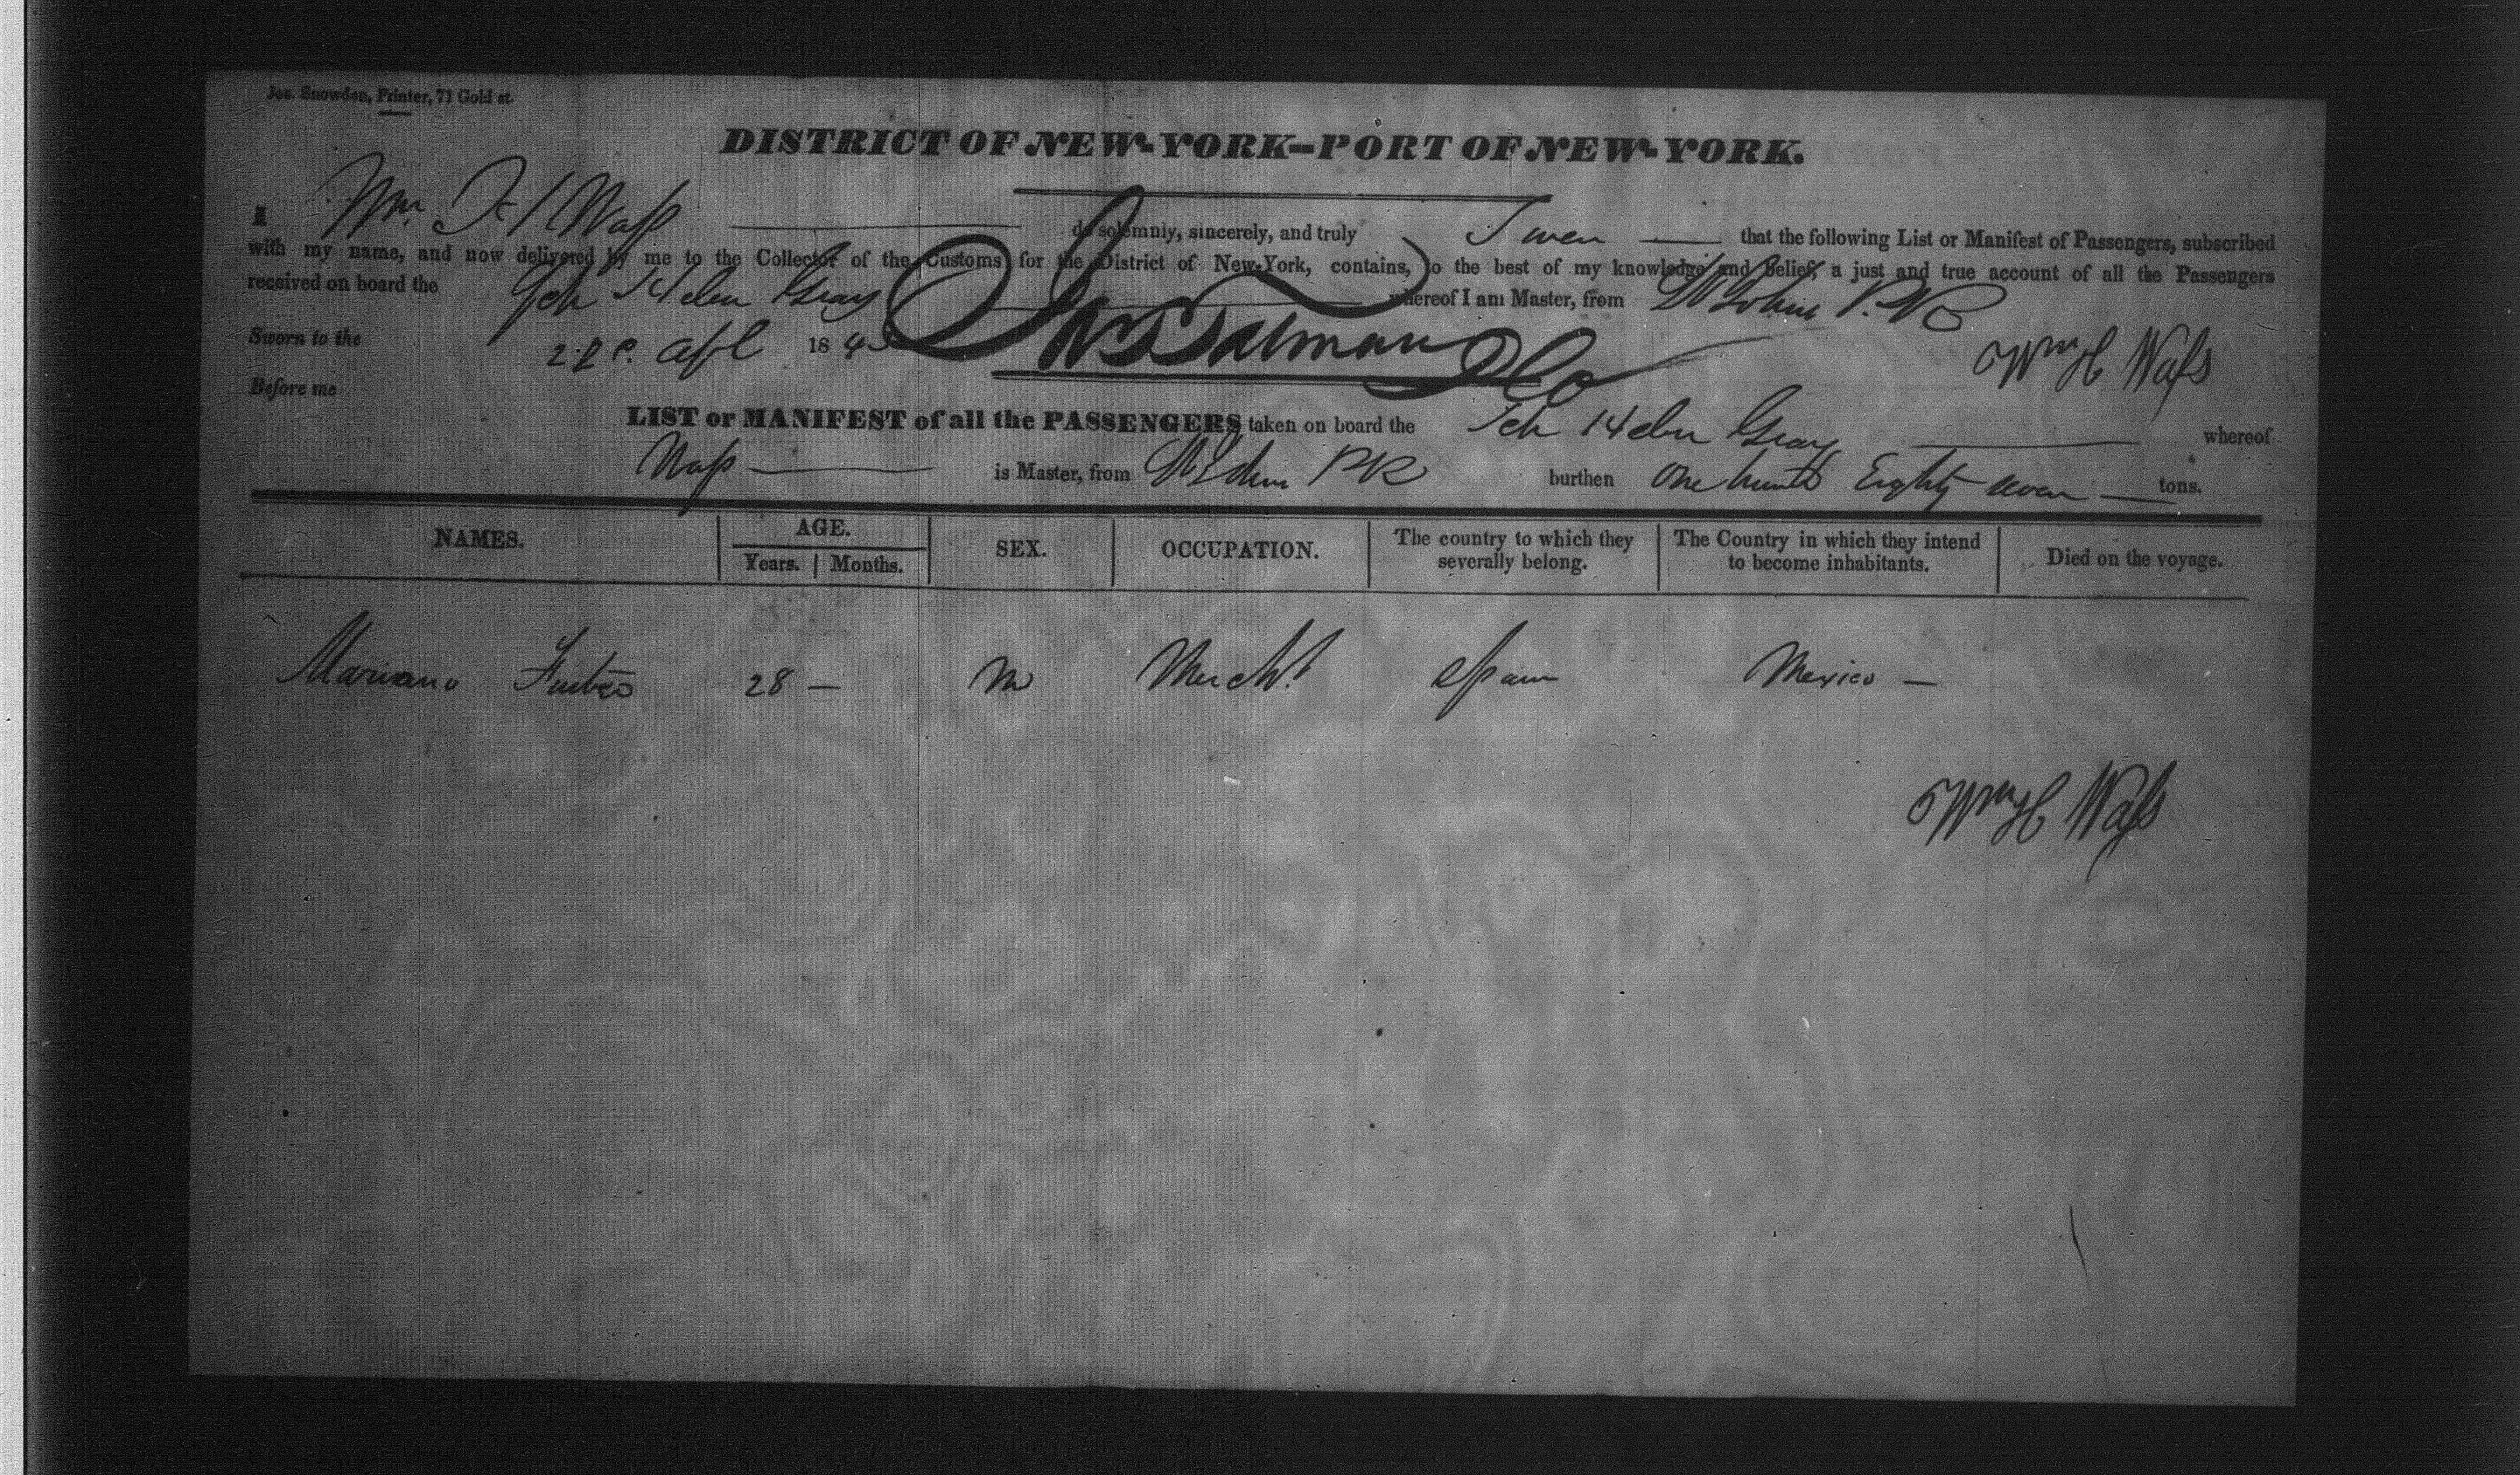 Jos. Snowden, Printer, 71 Gold st.
DISTRICT OF NEW-YORK—PORT OF NEW-YORK.
I Wm H Wass do solemnly, sincerely, and truly Swear that the following List or Manifest of Passengers, subscribed
with my name, and now delivered by me to the Collector of the Customs for the District of New-York, contains, to the best of my knowledge and belief, a just and true account of all the Passengers
received on board the Sch Helen Gray whereof I am Master, from St Johns P.R
Sworn to the Apl 1845
Wm H Wass
Before me
LIST or MANIFEST of all the PASSENGERS taken on board the Sch Helen Gray whereof
Wass is Master, from St Johns PR burthen One hund Eighty seven tons.
NAMES. AGE. SEX. OCCUPATION. The country to which they severally belong. The Country in which they intend to become inhabitants. Died on the voyage.
Years. Months.
Mariano 28 — M Mercht Spain Mexico —
Wm H Wass